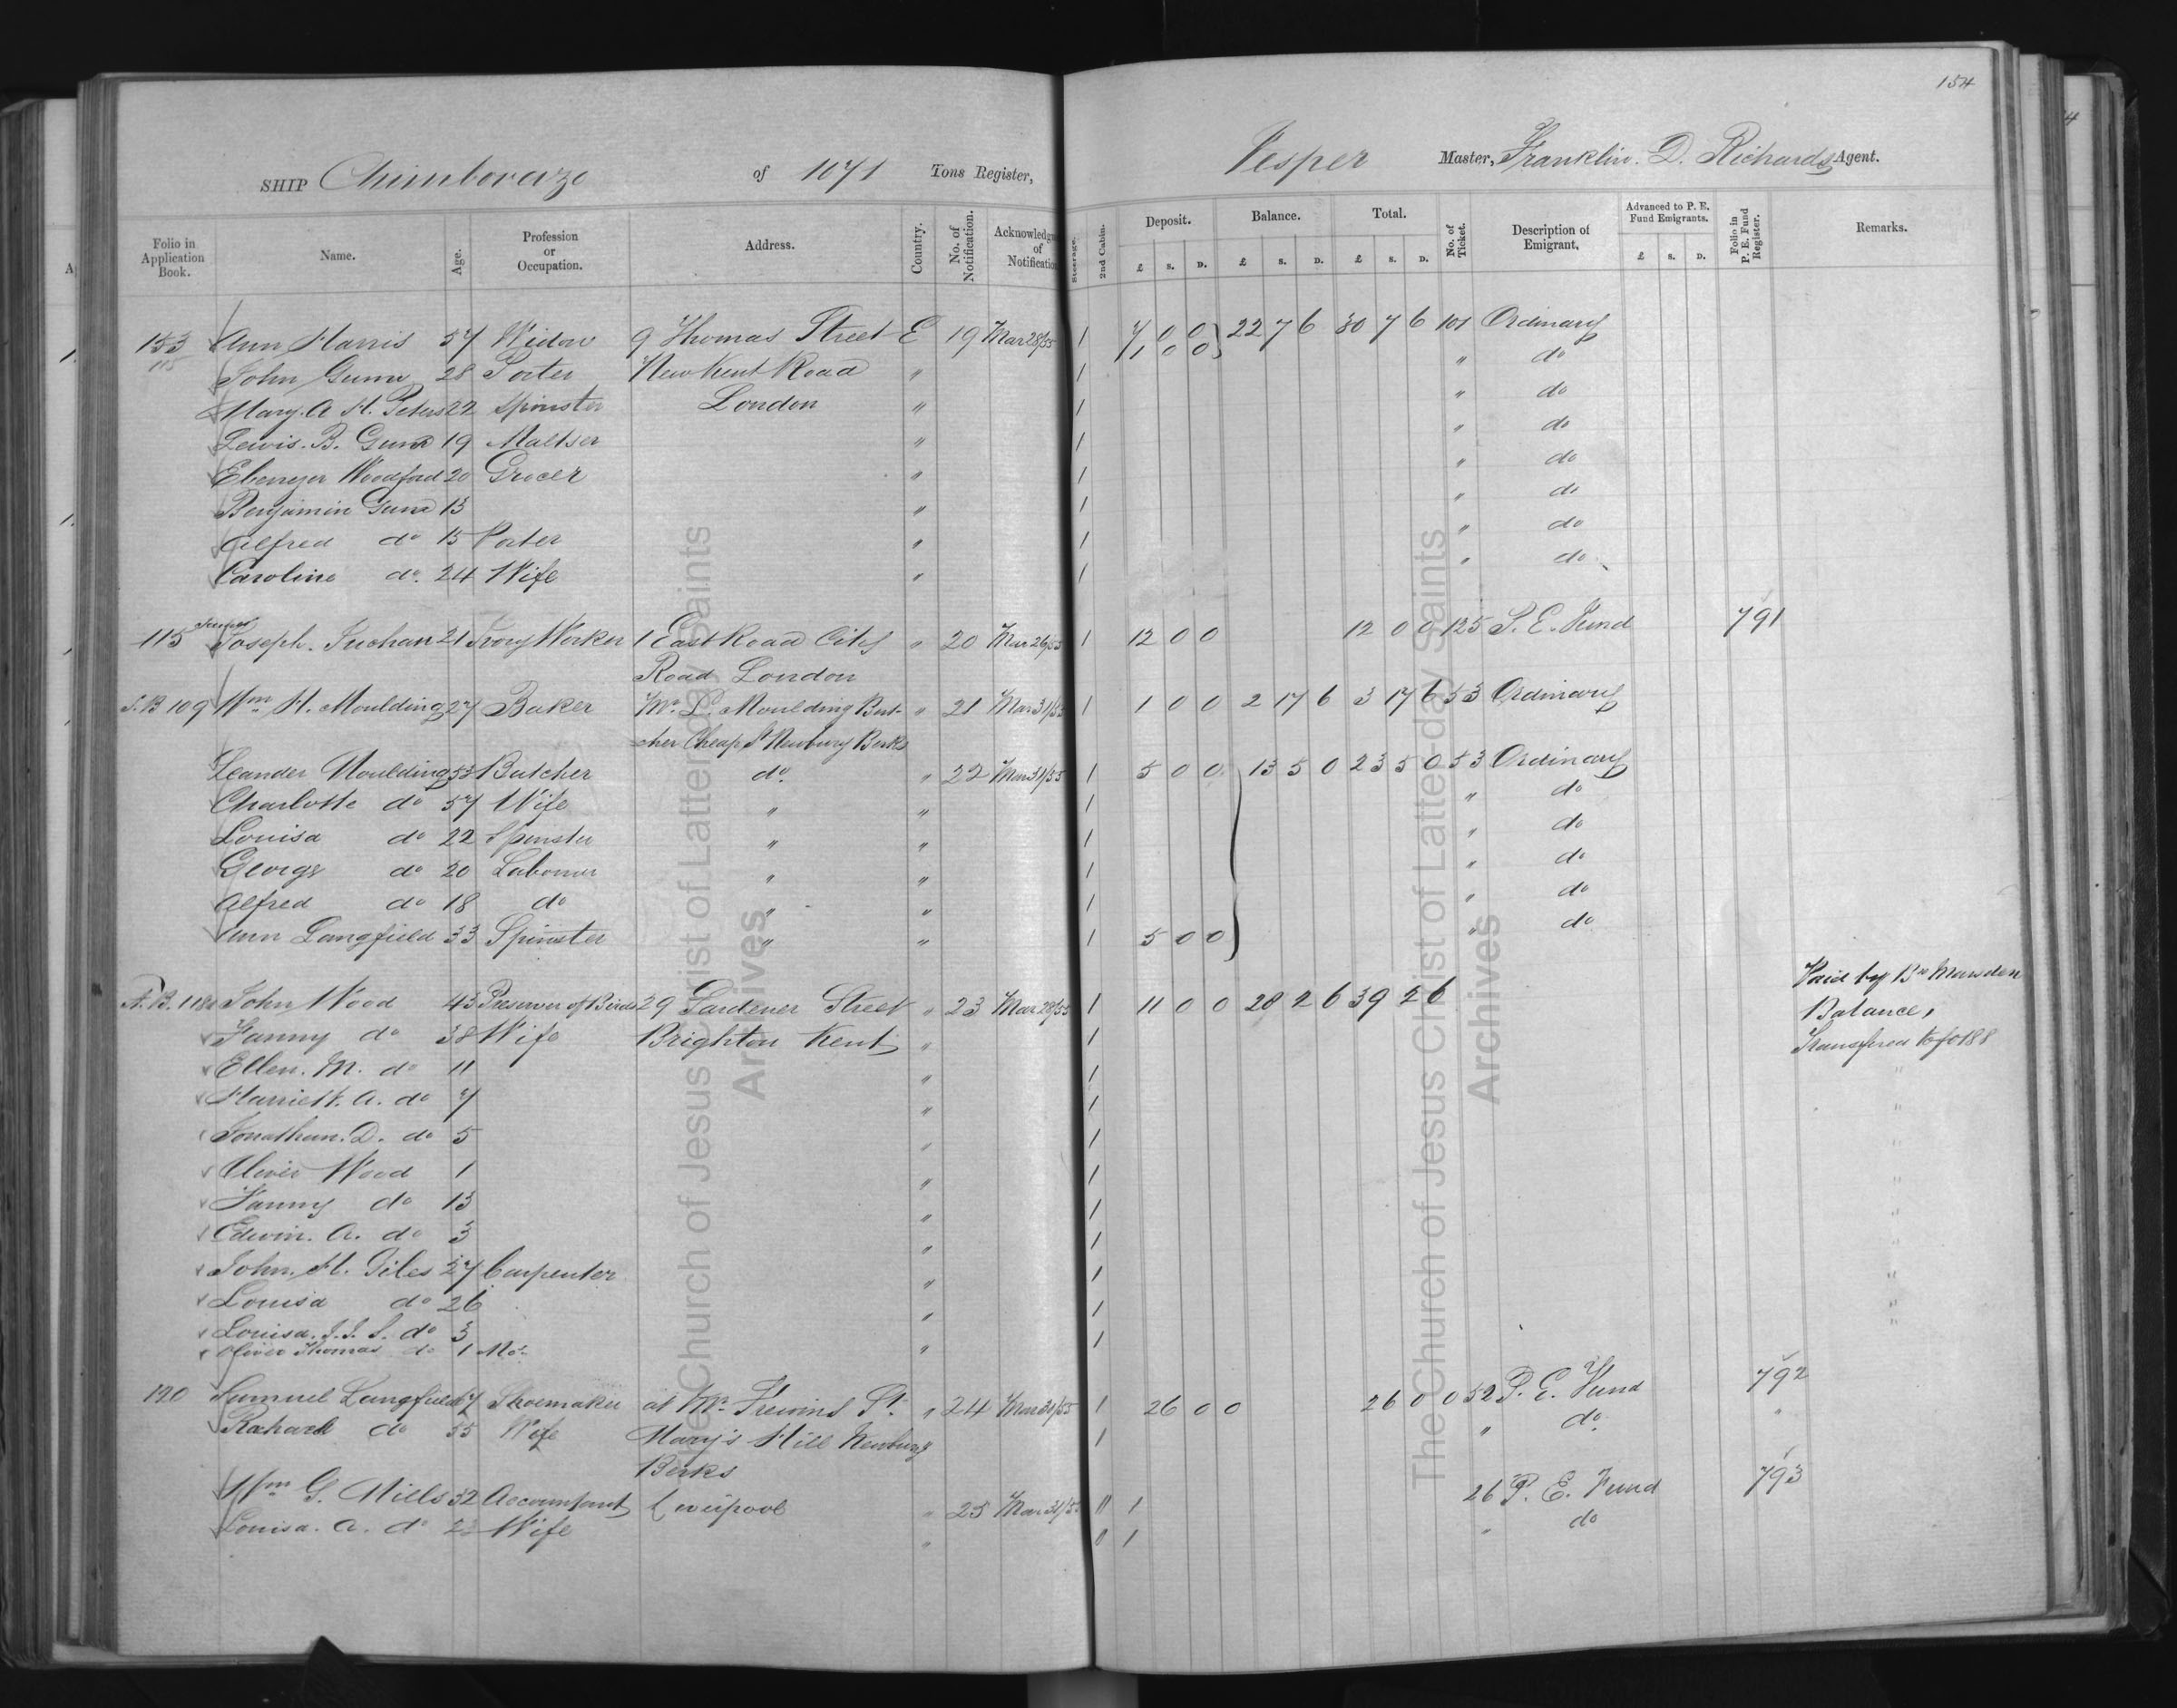 154
SHIP Chimborazo of 1071 Tons Register, Vesper Master, Franklin. D. Richards Agent.
Folio in Application Book. Name. Age. Profession or Occupation. Address. Country. No. of Notification. Acknowledgm of Notification Steerage. 2nd Cabin. Deposit. £ S. D. Balance. £ S. D. Total. £ S. D. No. of Ticket. Description of Emigrant. Advanced to P. E. Fund Emigrants. £ S. D. Folio in P. E. Fund Register. Remarks.
153 Ann Harris 57 Widow 9 Thomas Street E 19 Mar 28/55 1 7 0 0 22 7 6 30 7 6 101 Ordinary
115 John Gunn 28 Porter New Kent Road " 1 1 0 0 " do
Mary. A H. Peters 22 Spinster London " 1 " do
Lewis. B. Gunn 19 Maltser " 1 " do
Ebenezer Woodford 20 Grocer " 1 " do
Benjamin Gunn 13 " 1 " do
Alfred do 15 Porter " 1 " do
Caroline do. 24 Wife " 1 " do
115 Joseph. 21 Ivory Worker 1 East Road City " 20 Mar 26/55 1 12 0 0 12 0 0 125 P. E. Fund 791
Road London
109 Wm H. Moulding 27 Baker Mr. L. Moulding But- " 21 Mar 31/55 1 1 0 0 2 17 6 3 17 6 53 Ordinary
cher Cheap St Newbury Berks
Leander Moulding 53 Butcher do. " 22 Mar 31/55 1 5 0 0 13 5 0 23 5 0 53 Ordinary
Charlotte do 57 Wife " " 1 " do
Louisa do 22 Spinster " " 1 " do
George do 20 Labourer " " 1 " do
Alfred do 18 do " " 1 " do
Ann Langfield 33 Spinster " " 1 5 0 0 " do
John Wood 43 Preserver of Birds 29 Gardener Street " 23 Mar 28/55 1 11 0 0 28 2 6 39 2 6 Paid by Bro Marsden
Fanny do 38 Wife Brighton Kent " 1 Balance,
Ellen. M. do 11 " 1 Transfered to fo 188
Harriett. A. do 7 " 1 "
Jonathan. D. do 5 " 1 "
Oliver Wood 1 " 1
Fanny do 13 " 1 "
Edwin. A. do 3 " 1 "
John. H. Giles 27 Carpenter " 1 "
Louisa do 26 " 1 "
Louisa. J. I. S. do 3 " 1 "
Oliver Thomas do 1 Mo.
120 Samuel Langfield 57 Shoemaker at Mr. Trewins St. " 24 Mar 31/55 1 26 0 0 26 0 0 52 P. E. Fund 792
do 55 Wife Mary's Hill Newbury 1 " do "
Berks
Wm G. Mills 32 Accountant Liverpool " 25 Mar 31/55 11 1 26 P. E. Fund 793
Louisa. A. do Wife " 11 1 " do
The Church of Jesus Christ of Latter-day Saints
Archives
The Church of Jesus Christ of Latter-day Saints
Archives